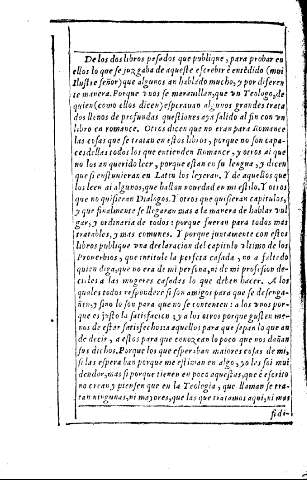 De los dos libros pesados que publique, para probar en
ellos lo que se juzgaba de aqueste escrebir è entẽdido (mui
Ilustre señor) que algunos an hablado mucho, y por diferen
te manera. Porque unos se maravillan, que un Teologo, de
quien (como ellos dicen) esperavan algunos grandes trata
dos llenos de profundas questiones aya salido al fin con un
libro en romance. Otros dicen que no eran para Romance
las cosas que se tratan en estos libros, porque no son capa-
ces dellas todos los que entienden Romance, y otros ai que
no los an querido leer, porque estan en su lengua, y dicen
que si estuvieran en Latin los leyeran. Y de aquellos que
los leen ai algunos, que hallan novedad en mi estilo. Y otros
que no quisieran Dialogos. Y otros que quisieran capitulos,
y que finalmente se llegaran mas a la manera de hablar vul
gar, y ordinaria de todos: porque fueran para todos mas
tratables, y mas comunes. Y porque juntamente con estos
libros publique una declaracion del capitulo ultimo de los
Proverbios, que intitule la perfeta casada, no a faltado
quien diga, que no era de mi persona, ni de mi profesion de-
cirles a las mugeres casadas lo que deben hacer. A los
quales todos respondere si son amigos para que se desenga-
ñen, y sino lo son para que no se contenten: a los unos por-
que es justo la satisfacion, y a los otros porque gusten me-
nos de estar satisfechos: a aquellos para que sepan lo que an
de decir, a estos para que conozcan lo poco que nos dañan
sus dichos. Porque los que esperaban maiores cosas de mi,
si las esperaban porque me estiman en algo, yo les soi mui
dendor, mas si porque tienen en poco aquestas, que è escrito
no crean, y piensen que en la Teologia, que llaman se tra-
tan ningunas, ni mayores, que las que tratamos aqui, ni mas
fi di-